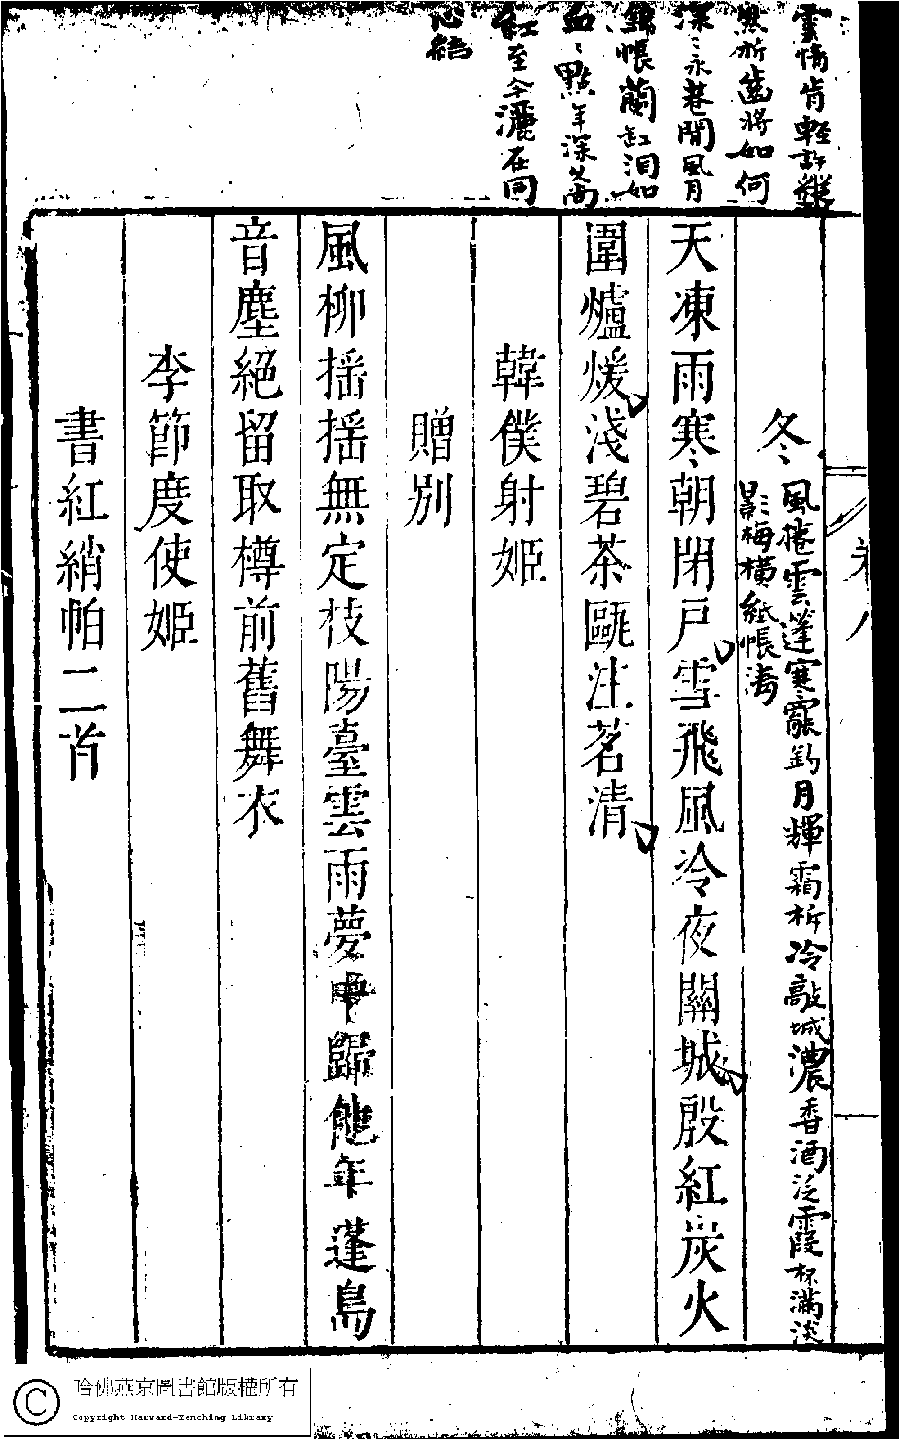 雲情肯輕許
斫齒將如何
深〻永巷閒風月
錦帳蘭缸泪如
血〻點年深久尚
紅至今灑在同
心結
冬
風捲雲蓬寒罷釣月輝霜柝冷敲城濃香酒泛霞杯滿淡
影梅橫紙帳清
天凍雨寒朝閉戶雪飛風冷夜關城殷紅炭火
圍爐煖淺碧茶甌注茗清
韓僕射姬
贈別
風柳搖搖無定枝陽臺雲雨夢中歸他年蓬島
音塵絕留取樽前舊舞衣
李節度使姬
書紅綃帕二首
哈佛燕京圖書館版權所有
Copyright Harvard-Yenching Library